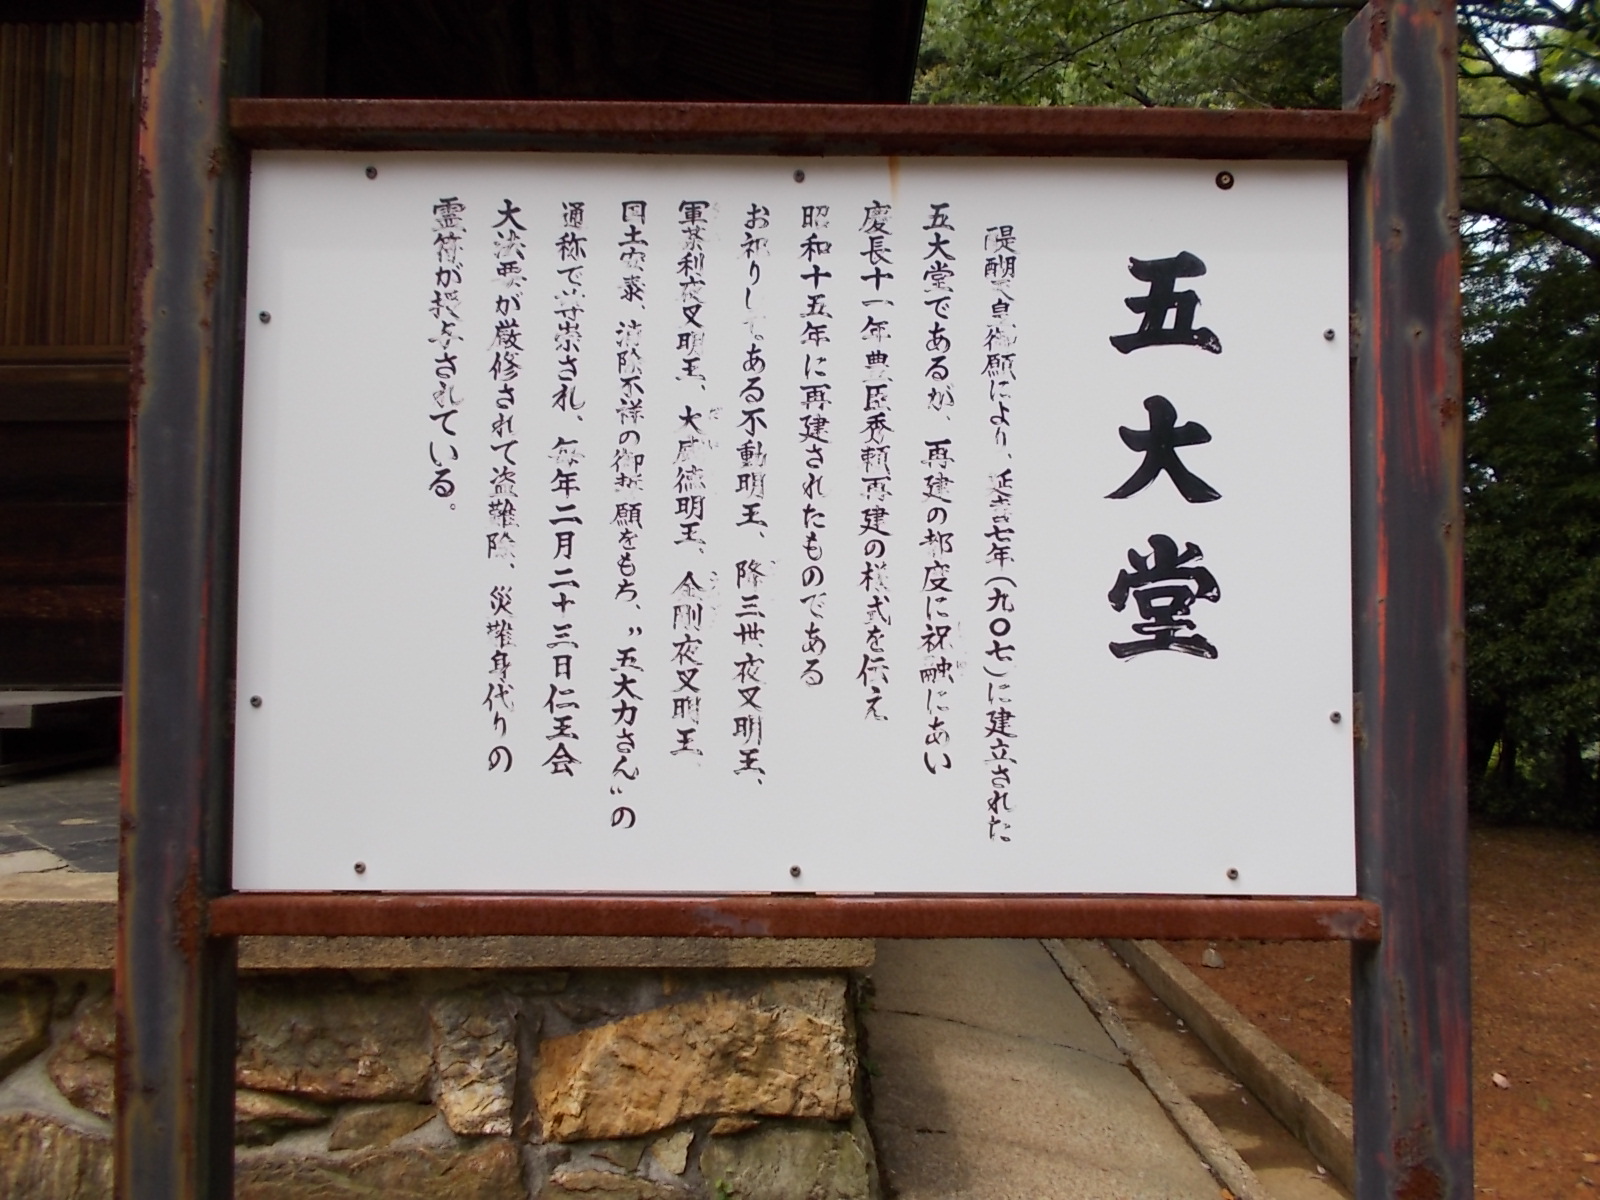 五大堂
醍醐天皇御願により、延喜七年(九〇七)に建立された
五大堂であるが、再建の都度に祝融にあい
慶長十一年豊臣秀頼再建の様式を伝え
昭和十五年に再建されたものである
お祀りしてある不動明王、降三世夜叉明王、
軍荼利夜叉明王、大威徳明王、金剛夜叉明王
国土安泰、消除不祥の御誓願をもち、〝五大力さん〟の
通称で尊崇され、毎年二月二十三日仁王会
大法要が厳修されて盗難除、災難身代りの
霊符が授与されている。